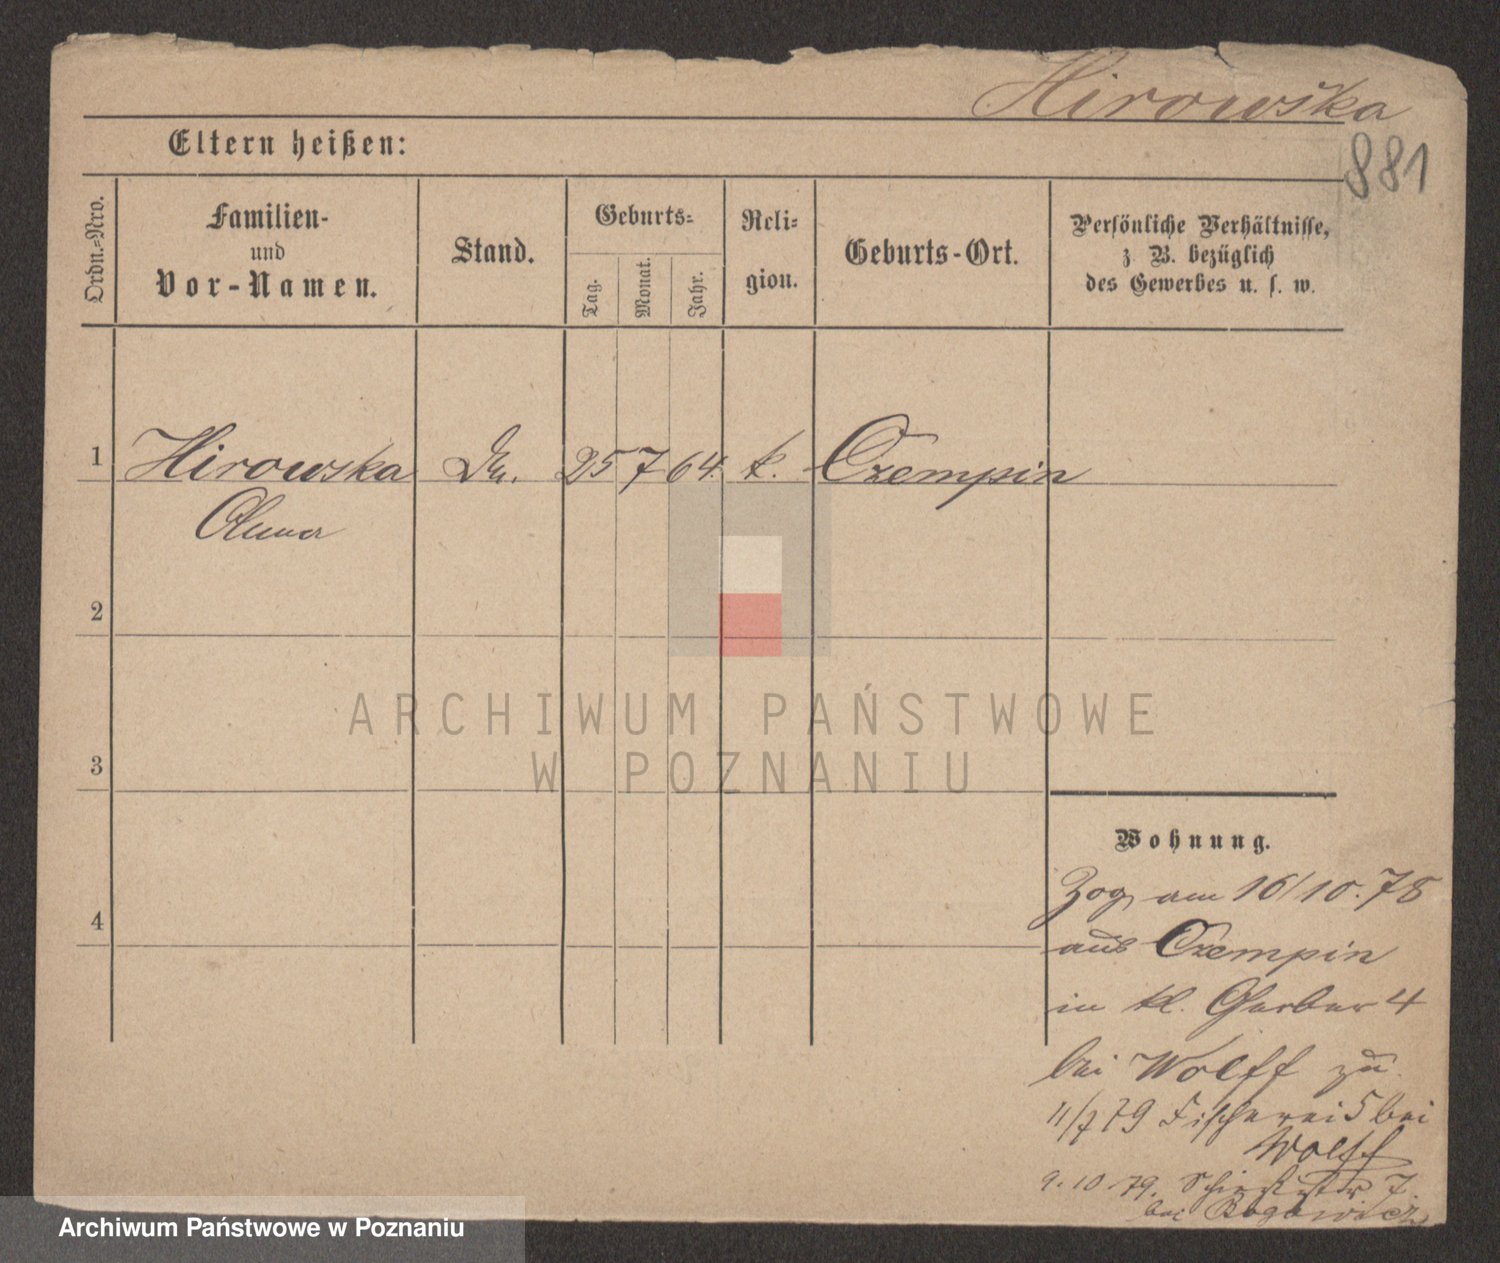 Hirowska
881
Eltern heißen:
Ordn.=Nro.
Familien-
und
Vor-Namen.
Stand.
Geburts=
Tag.
Monat.
Jahr.
Reli=
gion.
Geburts-Ort.
Persönliche Verhältnisse,
z. B. bezüglich
des Gewerbes u. s. w.
1 Hirowska 25 7 64. k. Czempin
2
ARCHIWUM PAŃSTWOWE
W POZNANIU
3
Wohnung.
Zog am 16/10.78
aus Czempin
in kl. Gerber 4
bei Wolff zu.
11/7 79 Fischerei 5 bei
Wolff
9.10.79. 7.
bei
4
Archiwum Państwowe w Poznaniu